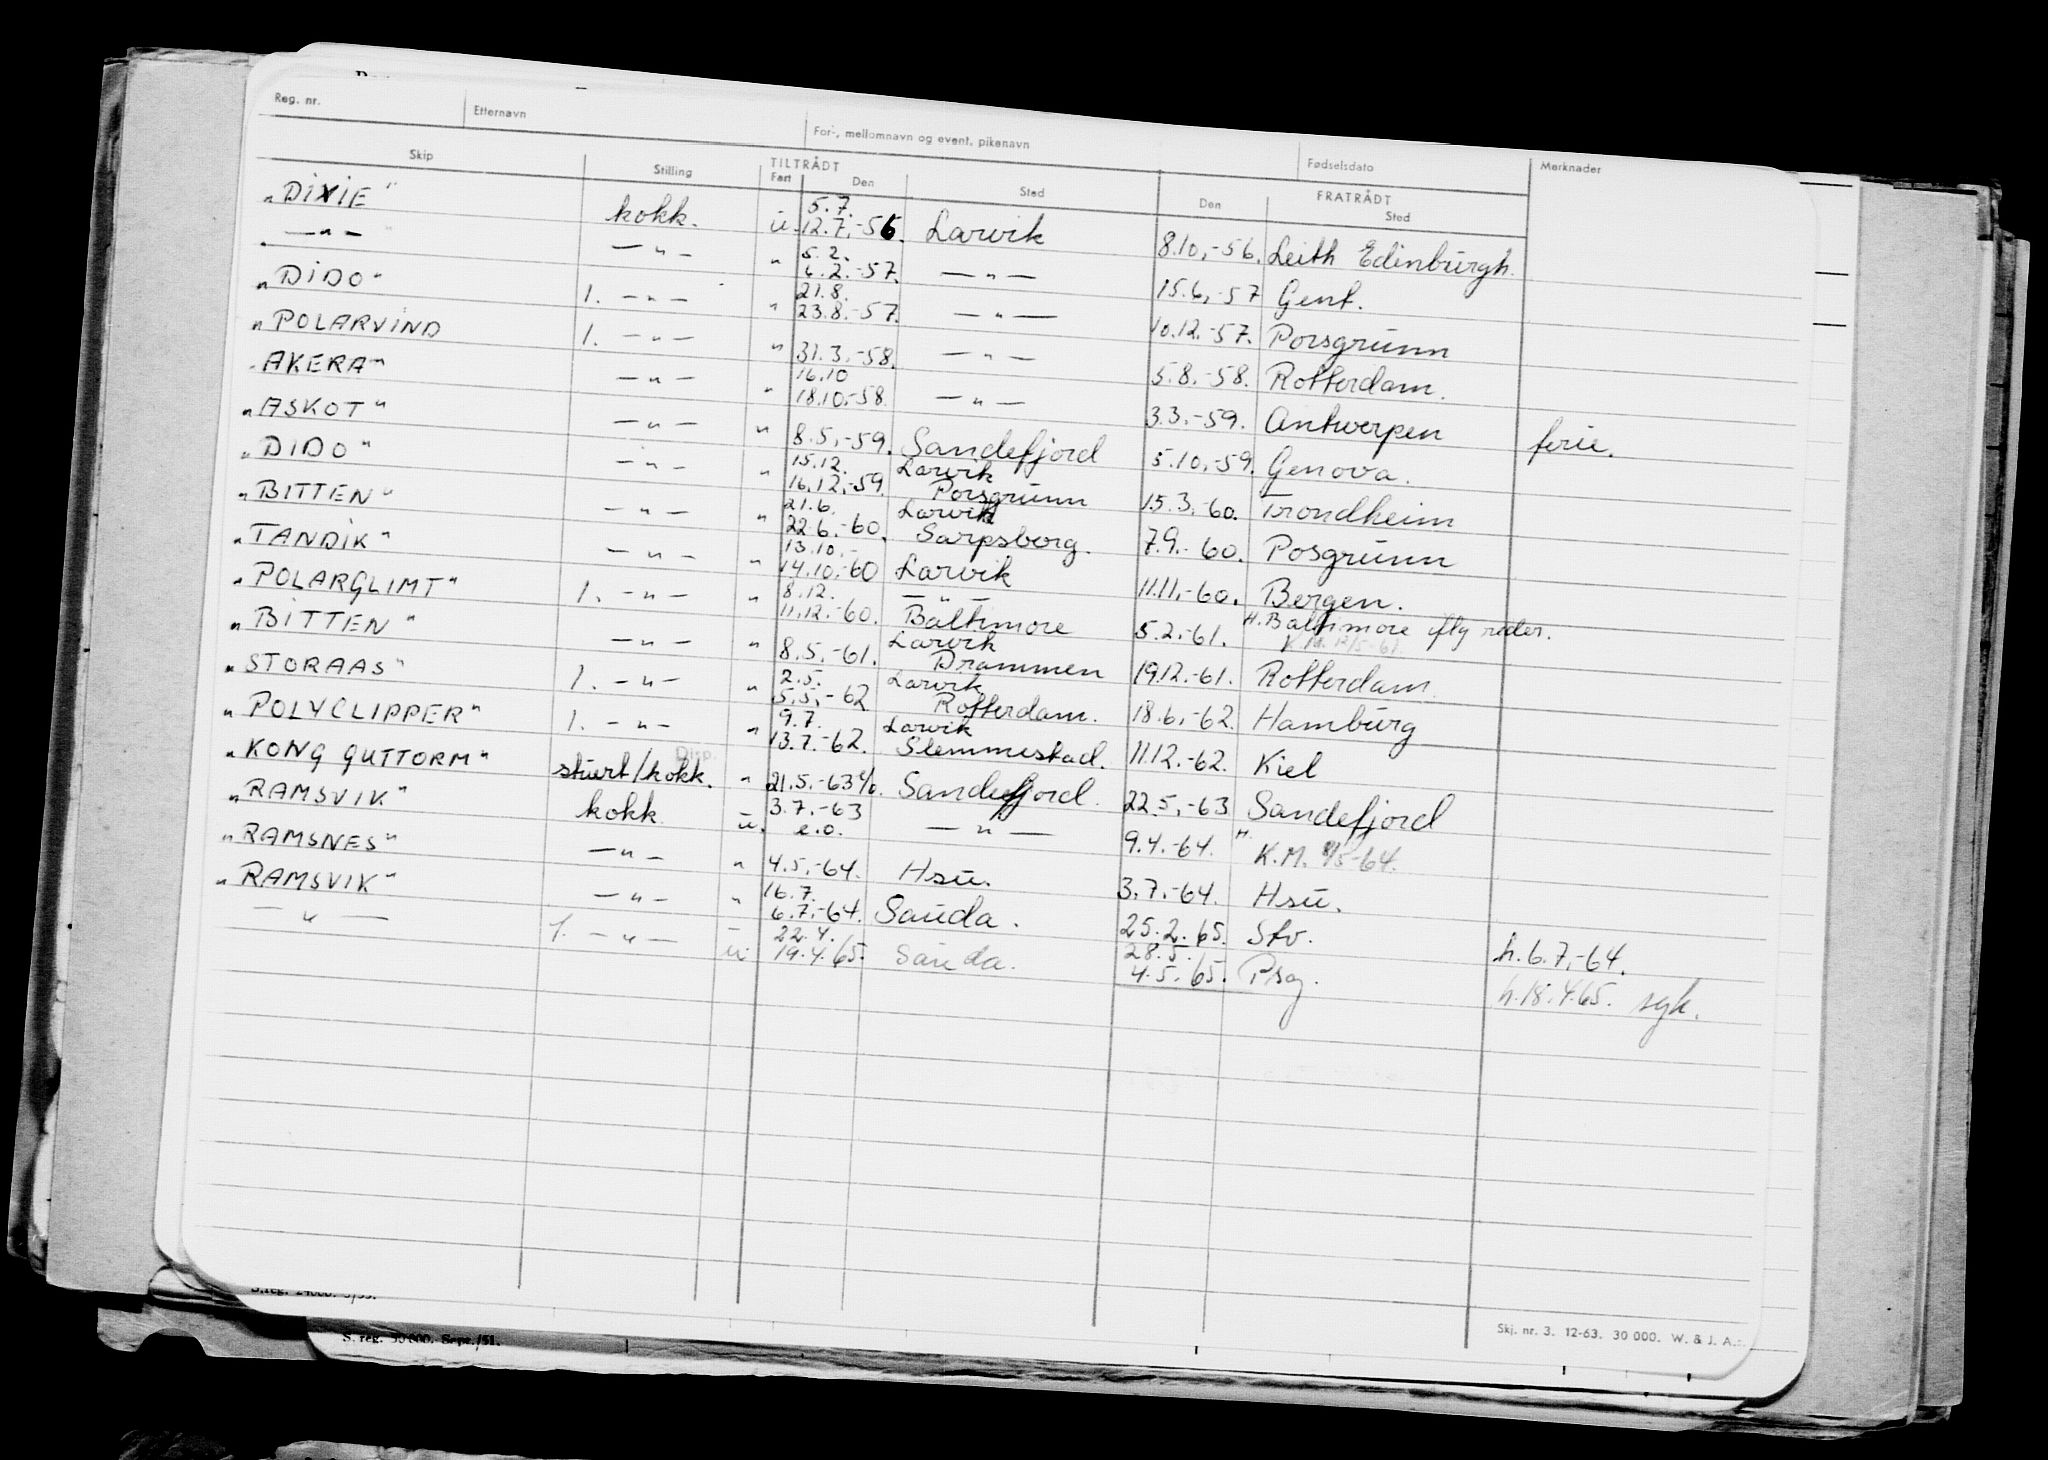 Reg. nr. Etternavn For-, mellomnavn og event. pikenavn Fødselsdato Merknader
Skip Stilling TILTRÅDT Fart Den Sted FRATRÅDT Den Sted
„DIXIE" kokk. u. 5.7. 12.7.-56. Larvik 8.10.-56. Leith Edinburgh.
—"— —"— " 5.2. 6.2.-57. —"— 15.6.-57 Gent.
„DIDO" 1. —"— " 21.8. 23.8.-57. —"— 10.12.-57. Porsgrunn
„POLARVIND 1. —"— " 31.3.-58. —"— 5.8.-58. Rotterdam.
„AKERA" —"— " 16.10 18.10.-58. —"— 3.3.-59. Antwerpen ferie.
„ASKOT" —"— " 8.5.-59. Sandefjord 5.10.-59. Genova.
„DIDO" —"— " 15.12. 16.12.-59. Larvik Porsgrunn 15.3.-60. Trondheim
„BITTEN" —"— " 21.6. 22.6.-60. Larvik Sarpsborg. 7.9.-60. Posgrunn
„TANDIK" —"— " 13.10.- 14.10.-60 Larvik 11.11.-60. Bergen.
„POLARGLIMT" 1. —"— " 8.12. 11.12.-60. —"— Baltimore 5.2.-61. H. Baltimore iflg reder. K.M. 12/5-61.
„BITTEN" —"— " 8.5.-61. Larvik Drammen 19.12.-61. Rotterdam.
„STORAAS" 1. —"— " 2.5. 5.5.-62 Larvik Rotterdam. 18.6.-62. Hamburg
„POLYCLIPPER" 1. —"— " 9.7. 13.7.-62. Larvik Slemmestad. 11.12.-62. Kiel
„KONG GUTTORM" Disp. stuert/kokk. " 21.5.-63 Sandefjord. 22.5.-63 Sandefjord
„RAMSVIK" kokk u. 3.7.-63 e.o. —"— 9.4.-64. " K.M. 8/5-64.
„RAMSNES" —"— " 4.5.-64. Hsu. 3.7.-64. Hsu.
„RAMSVIK" —"— " 16.7. 6.7.-64. Sauda. 25.2.65. Stv. h.6.7.-64.
—"— 1. —"— u. 22.4. 19.4.65. Sauda. 28.5. 4.5.65. Psg. h.18.4.65. syk.
S. reg. 30 000. Sept./51.
Skj. nr. 3. 12-63. 30 000. W. & J. A.: